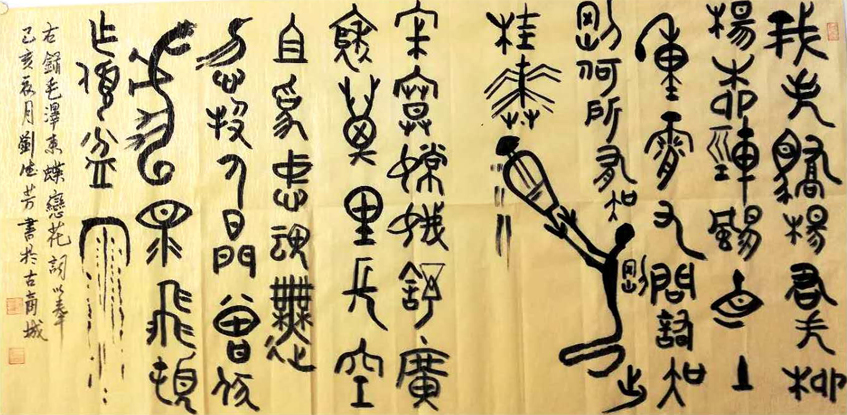 我失驕楊君失柳
楊柳輕颺直上
重霄九問訊吳
剛何所有吳
剛捧出
桂花酒
寂寞嫦娥舒廣
袖萬里長空
且為忠魂舞
忽報人間曾伏
虎淚飛頓
作傾盆雨
右錄毛澤東蝶戀花詞以奉
己亥辰月劉德芳書於古商城